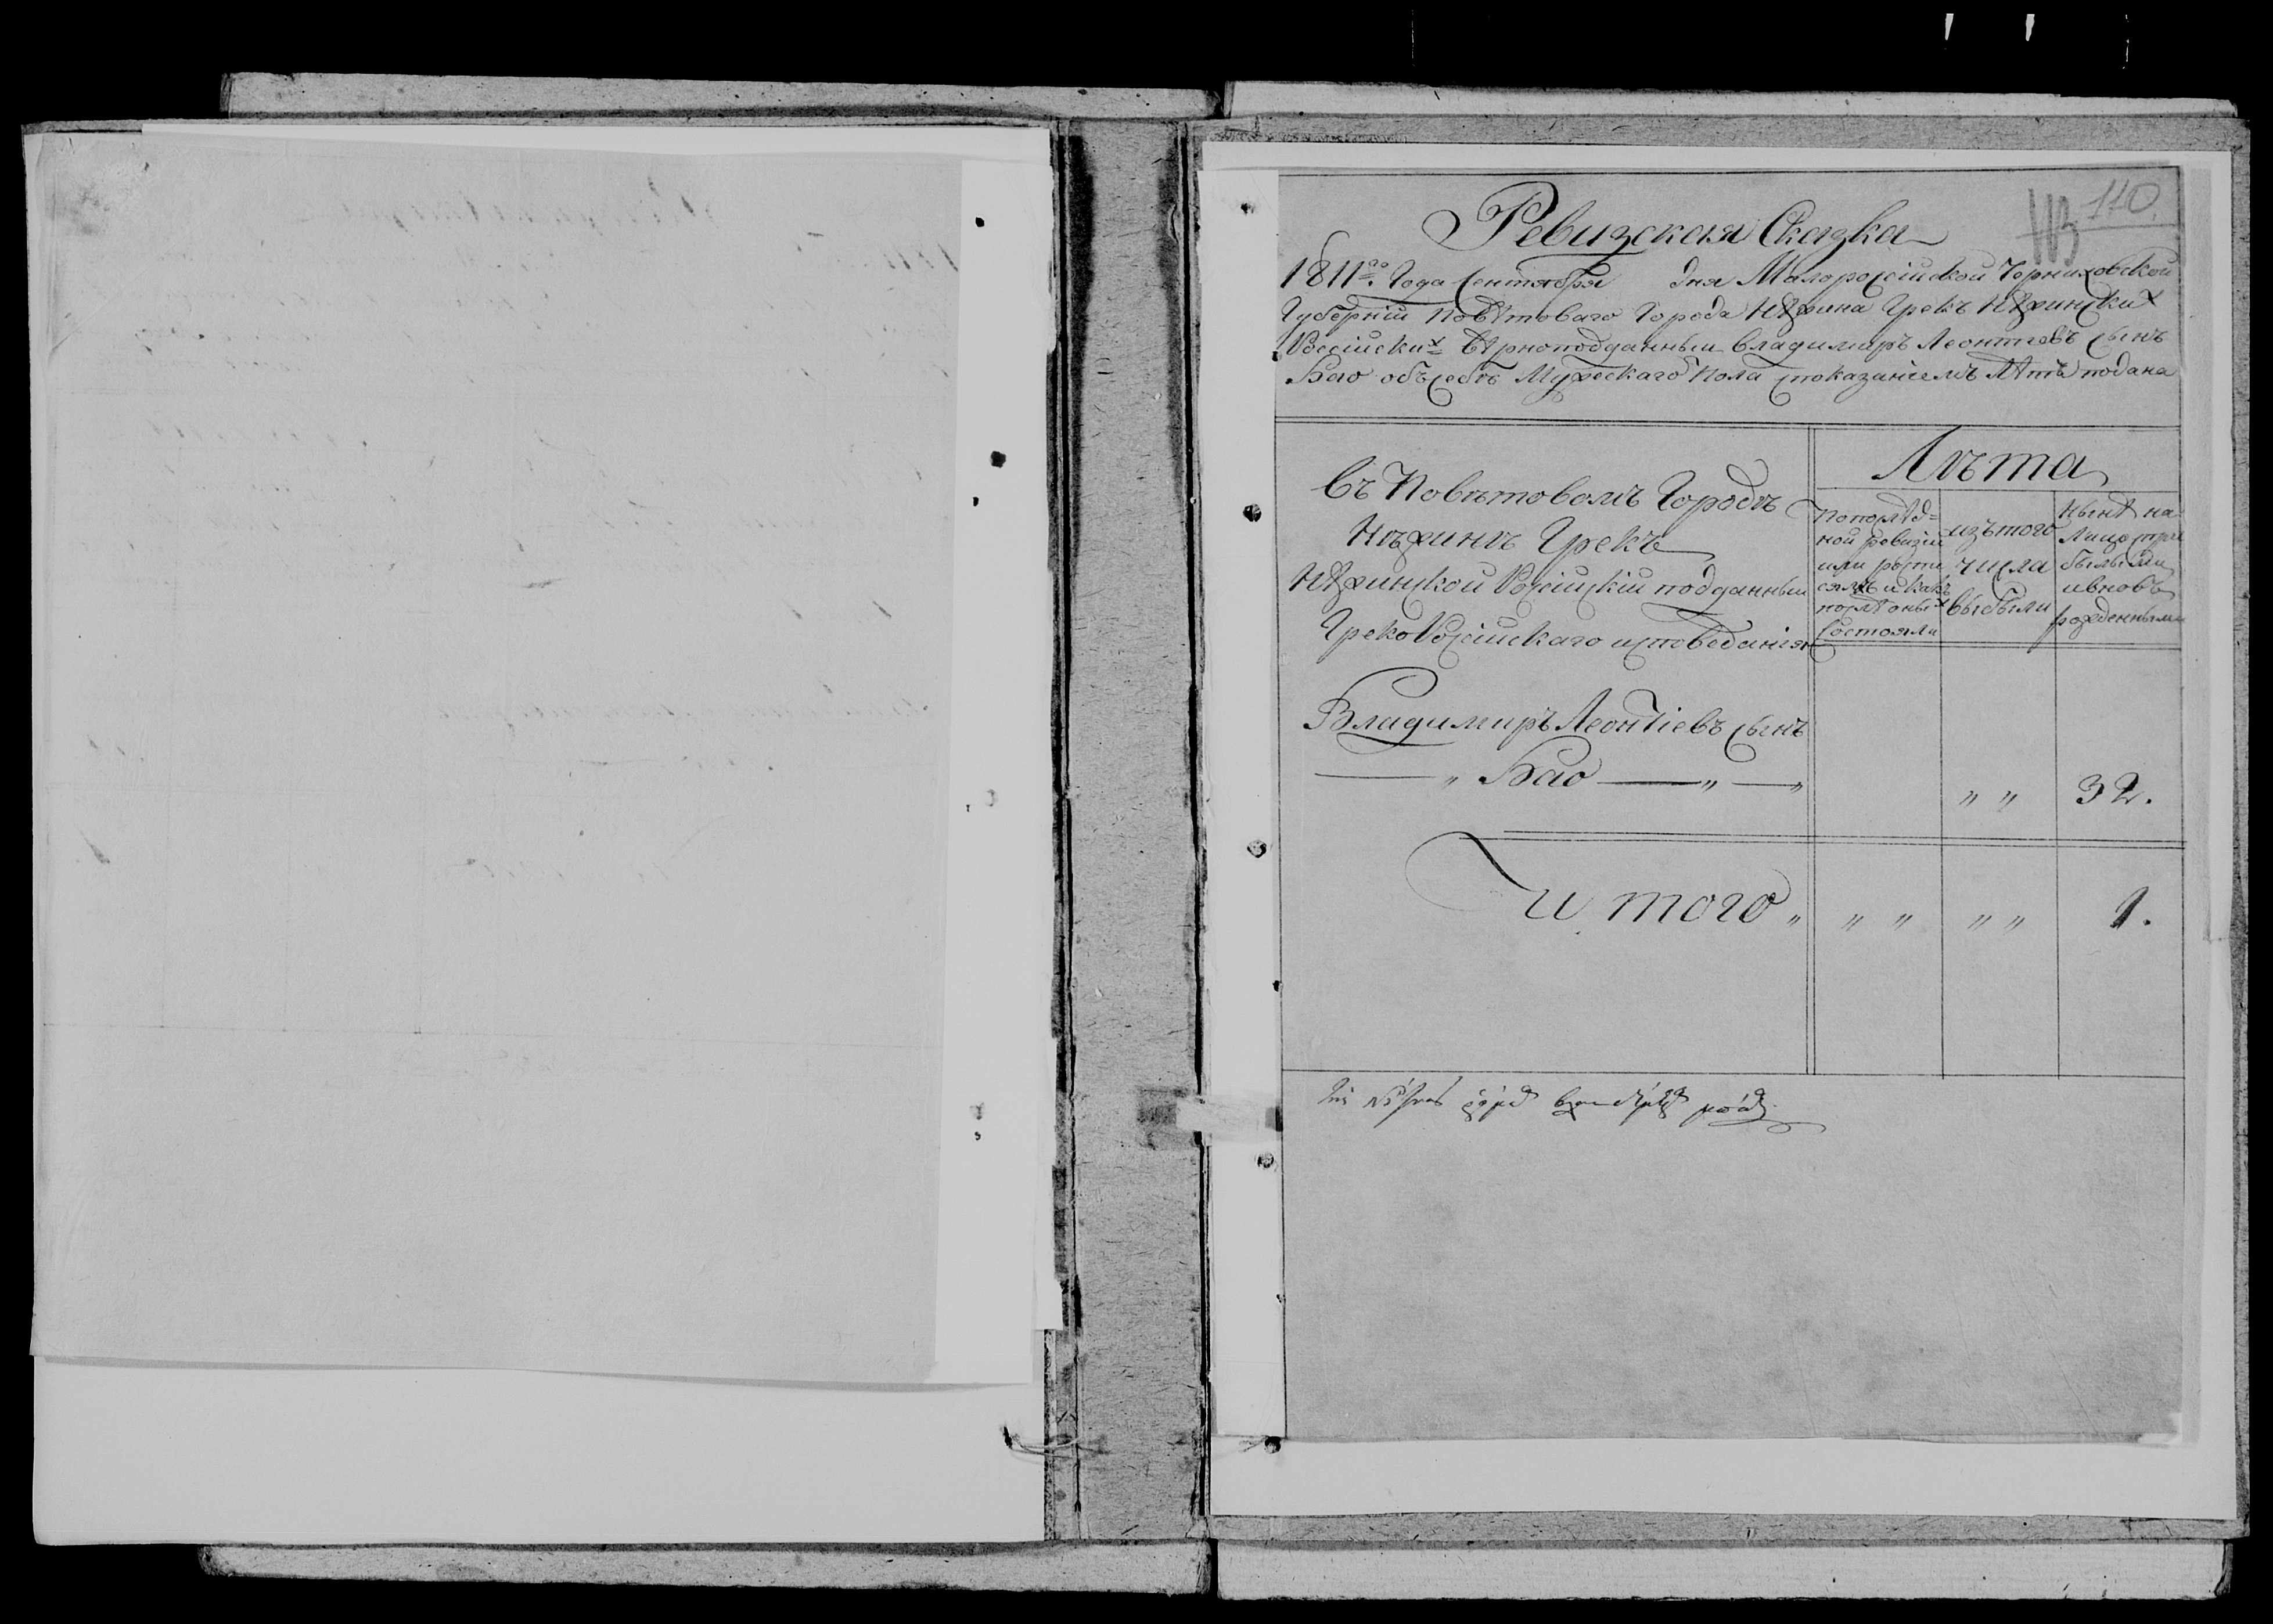 110.
113
Ревизская Сказка
1811го Года Сентября дня Малороссійской Черниховской
Губерніи Повѣтоваго Города Нѣжина Грекъ Нѣжинских
Россійских вѣрноподданный Владимиръ Леонтіевъ сынъ
Бао объ себѣ Мужескаго Пола споказаніемъ лѣтъ подана
Въ Повѣтовомъ Городѣ
Нѣжинѣ Грекъ
Нѣжинской Россійскій подданный
Греко Россійскаго исповеданія
Лѣта
По послѣд=
ной ревизіи
или
состояли
изъ того
числа
выбыли
Нынѣ на
лицо
ивновь
рожденными
Владимиръ Леонтіевъ сынъ
— „ Бао — „ —
„ „ 32.
И того „ „ „ „ „ 1.